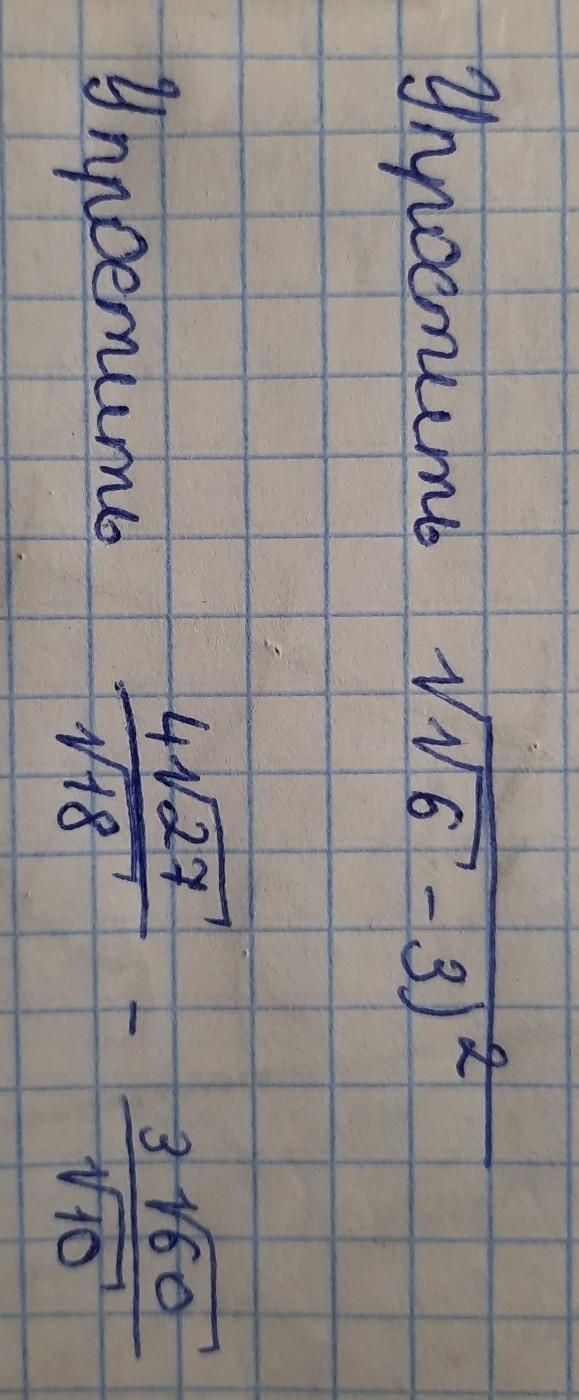 Упростить √(√6 - 3)²
Упростить 4√27/√18 - 3√60/√10